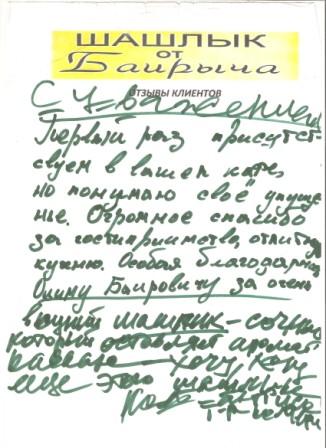 ШАШЛЫК
ОТ
Баирыча
ОТЗЫВЫ КЛИЕНТОВ
С Уважением
Первый раз присутст-
вуем в вашем кафе
но понимаю своё упуще
нье. Огромное спасибо
за гостиприимство, отличную
кухню. Особая благодарность
Баировичу за очень
вкусный шашлык - сочный
который оставляет аромат
хочу
еще этот шашлык